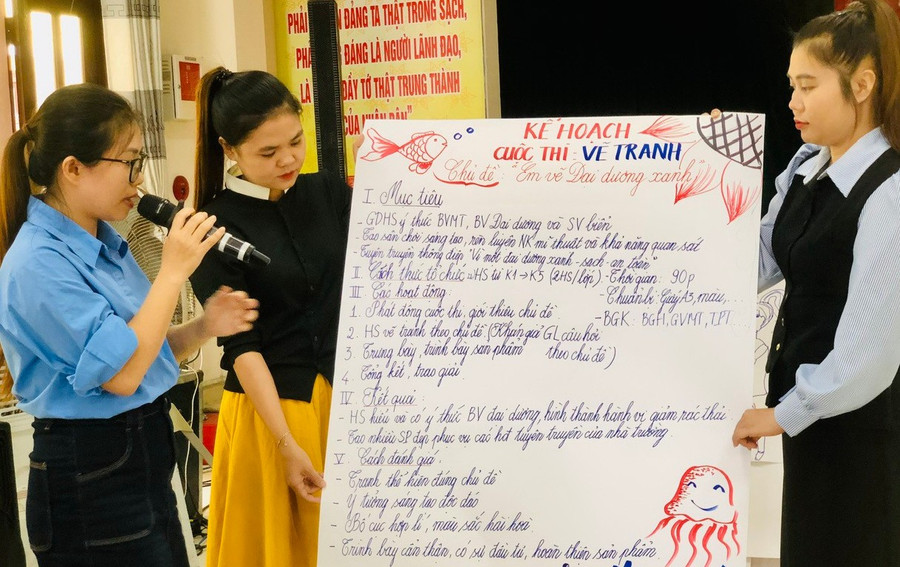 PHẢI ĐẢNG TA THẬT TRONG SẠCH,
ĐÁNG LÀ NGƯỜI LÃNH ĐẠO,
LÀ ĐẦY TỚ THẬT TRUNG THÀNH
CỦA NHÂN DÂN"
KẾ HOẠCH
CUỘC THI: VẼ TRANH
Chủ đề: "Em vẽ Đại dương xanh"
I. Mục tiêu
- GDHS ý thức BVMT, BV Đại dương và SV biển
- Tạo sân chơi sáng tạo, rèn luyện NK mĩ thuật và khả năng quan sát
- Tuyên truyền thông điệp "Vì một đại dương xanh - sạch - an toàn"
II. Cách thức tổ chức: HS từ K1 → K5 (2HS/lớp). Thời gian: 90p
III. Các hoạt động: - Chuẩn bị: Giấy A3, màu,...
1. Phát động cuộc thi, giới thiệu chủ đề - BGK: BGH, GVMT, TPT
2. HS vẽ tranh theo chủ đề (Khán giả GL câu hỏi
3. Trưng bày, trình bày sản phẩm theo chủ đề)
4. Tổng kết, trao giải
IV. Kết quả:
- HS hiểu và có ý thức BV đại dương, hình thành hành vi giảm rác thải
- Tạo nhiều SP đẹp phục vụ các hđ tuyên truyền của nhà trường
V. Cách đánh giá
- Tranh thể hiện đúng chủ đề
- Ý tưởng sáng tạo độc đáo
- Bố cục hợp lí, màu sắc hài hoà
- Trình bày cẩn thận, có sự đầu tư, hoàn thiện sản phẩm